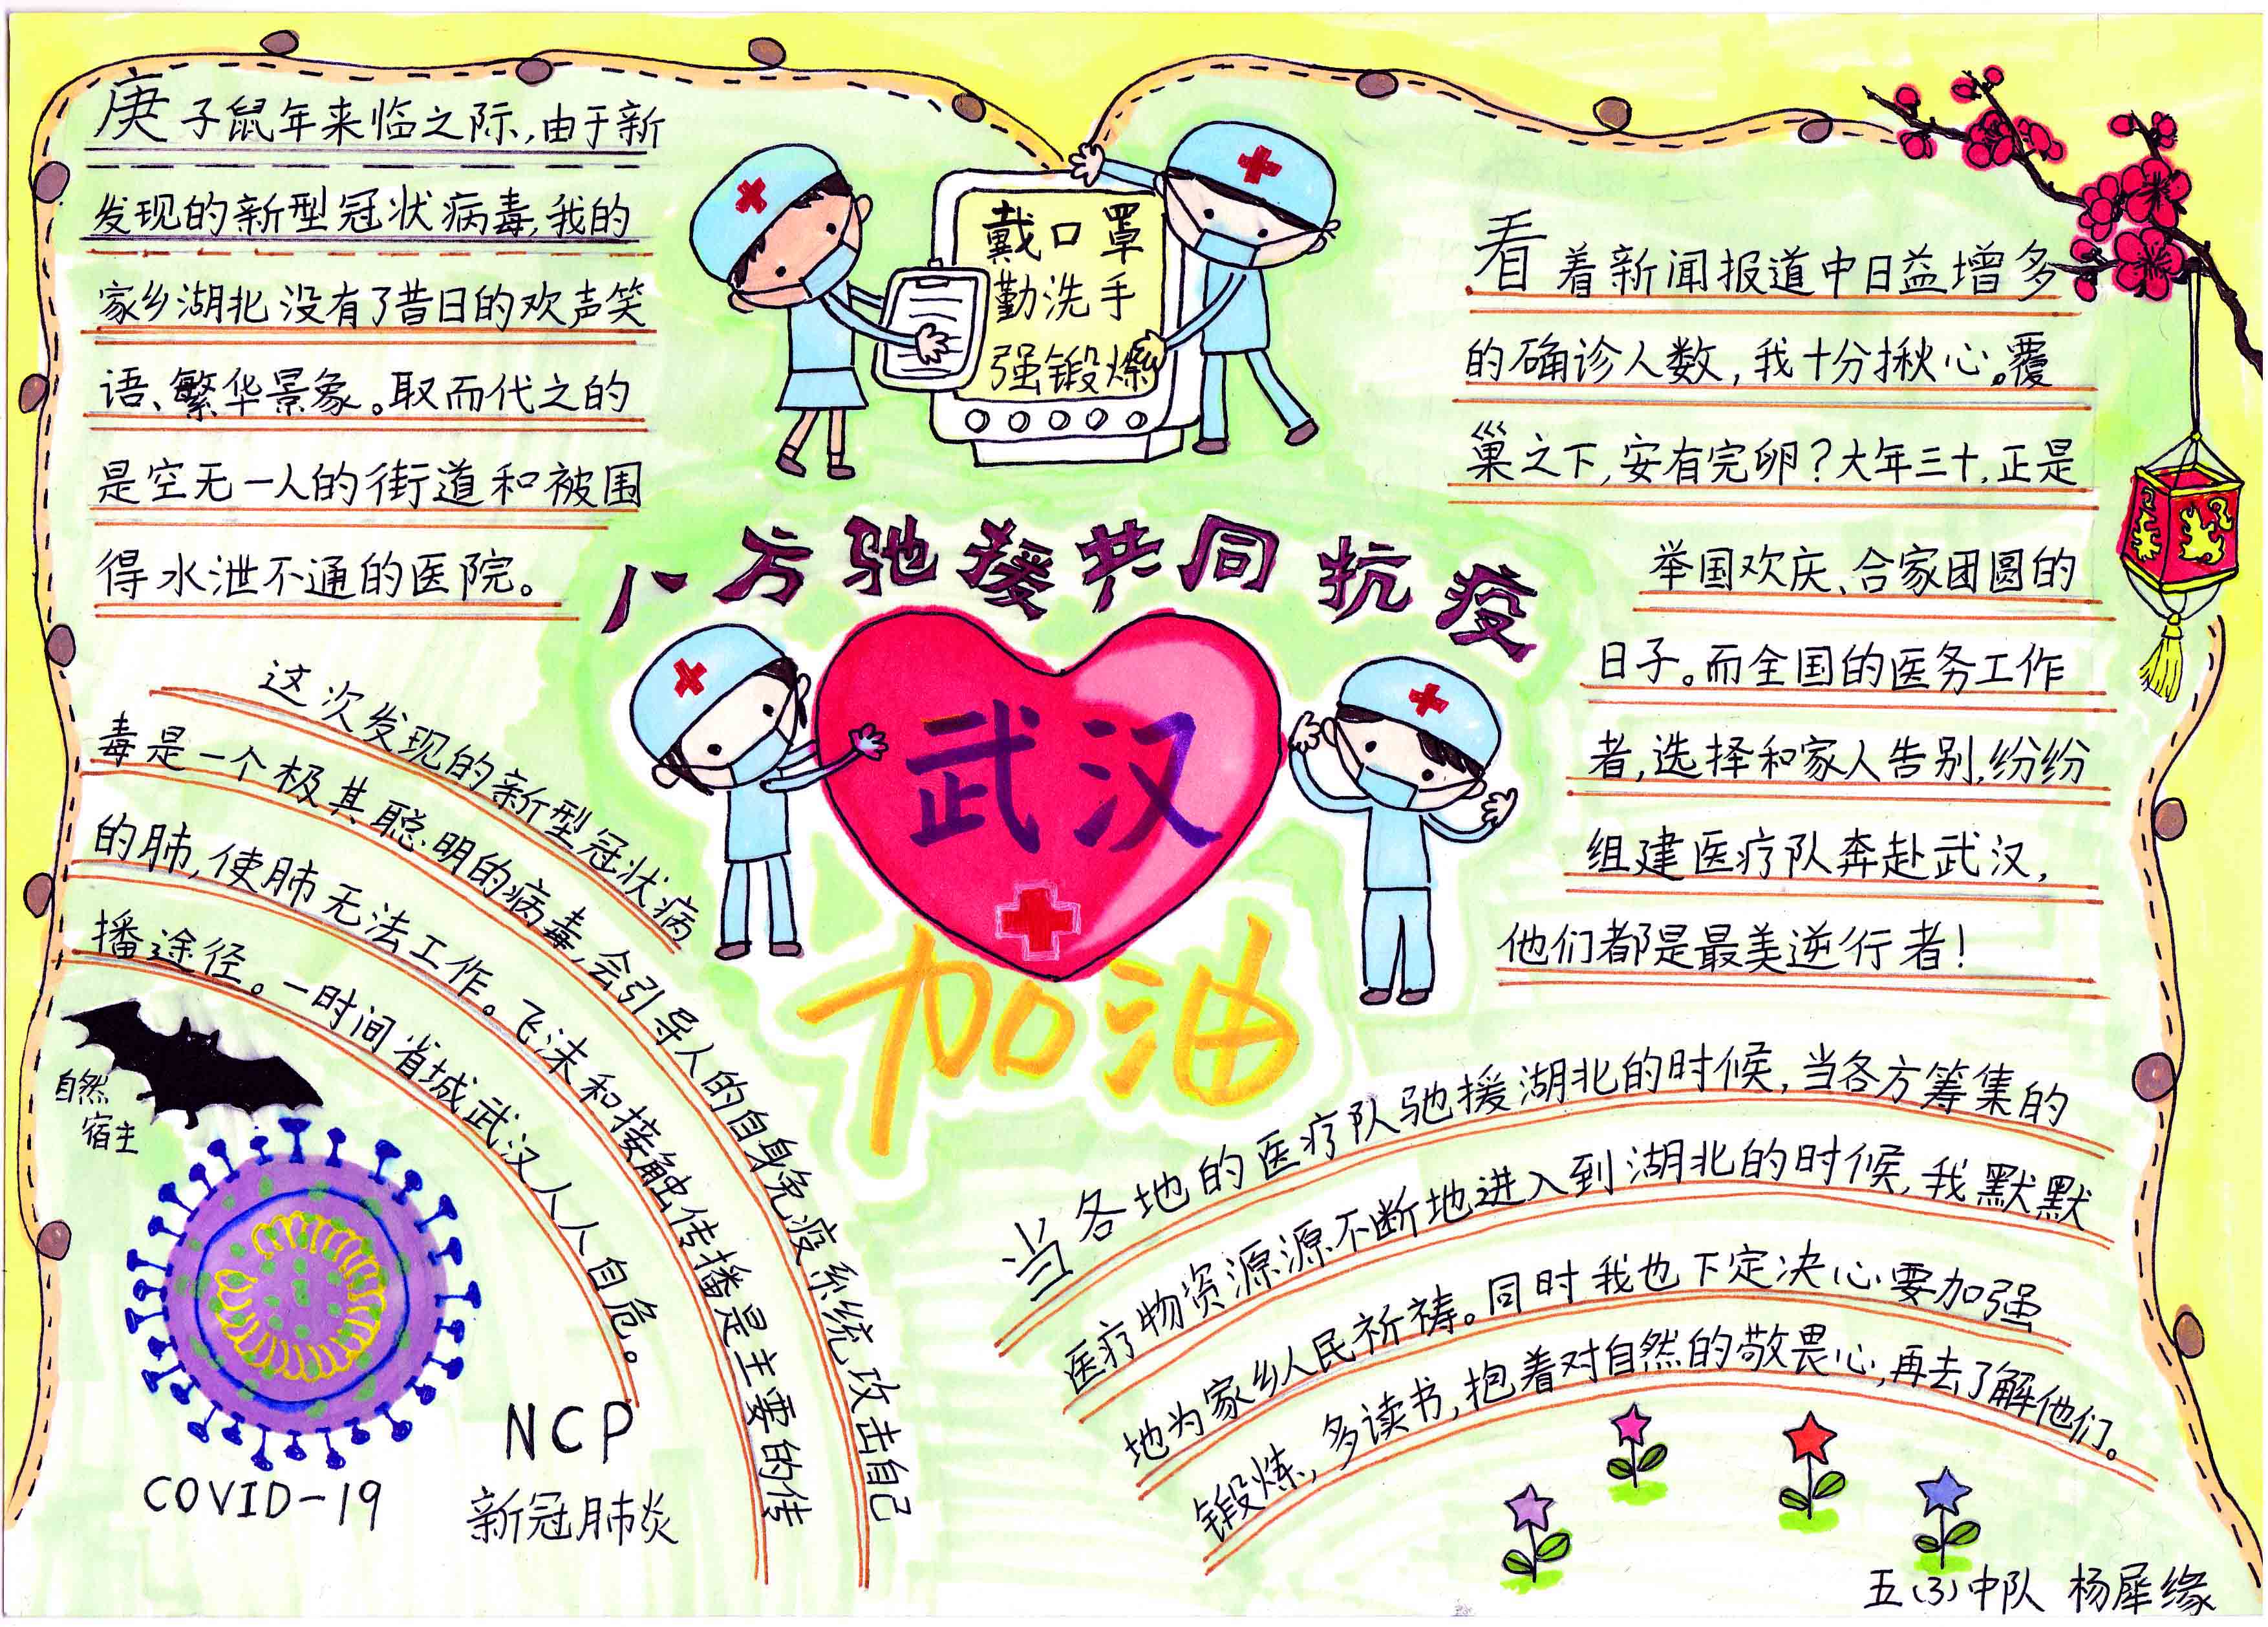 庚子鼠年来临之际,由于新
发现的新型冠状病毒,我的
家乡湖北没有了昔日的欢声笑
语、繁华景象。取而代之的
是空无一人的街道和被围
得水泄不通的医院。
戴口罩
勤洗手
强锻炼
八方驰援共同抗疫
武汉
加油
看着新闻报道中日益增多
的确诊人数,我十分揪心。覆
巢之下,安有完卵?大年三十,正是
举国欢庆、合家团圆的
日子。而全国的医务工作
者,选择和家人告别,纷纷
组建医疗队奔赴武汉,
他们都是最美逆行者!
这次发现的新型冠状病
毒是一个极其聪明的病毒,会引导人的自身免疫系统攻击自己
的肺,使肺无法工作。飞沫和接触传播是主要的传
播途径。一时间省城武汉人人自危。
自然
宿主
COVID-19
NCP
新冠肺炎
当各地的医疗队驰援湖北的时候,当各方筹集的
医疗物资源源不断地进入到湖北的时候,我默默
地为家乡人民祈祷。同时我也下定决心要加强
锻炼,多读书,抱着对自然的敬畏心,再去了解他们。
五(3)中队 杨犀缘